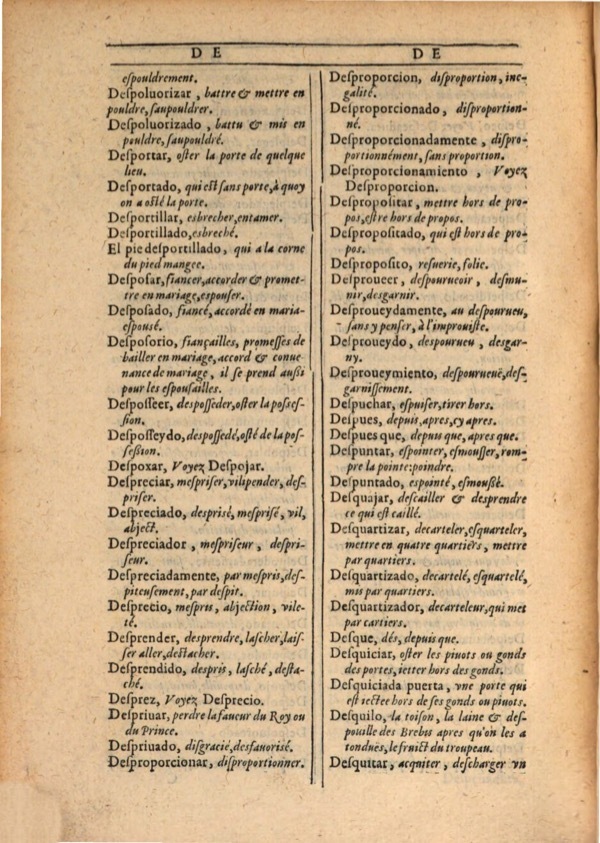 DE
eſpouldrement.
Deſpoluorizar, battre & mettre en
pouldre, ſaupouldrer.
Deſpoluorizado, battu & mis en
pouldre, ſaupouldré.
Deſportar, oſter la porte de quelque
lieu.
Deſportado, qui eſt ſans porte, à quoy
on a oſté la porte.
Deſportillar, esbrecher, entamer.
Deſportillado, esbreché.
El pie deſportillado, qui a la corne
du pied mangee.
Deſpoſar, fiancer, accorder & promet-
tre en mariage, eſpouſer.
Deſpoſado, fiancé, accordé en maria-
eſpousé.
Deſpoſorio, fiançailles, promeſſes de
bailler en mariage, accord & conue
nance de mariage, il ſe prend auſſi
pour les eſpouſailles.
Deſpoſſeer, deſpoſſeder, oſter la poſſeſ-
ſion.
Deſpoſſeydo, deſpoſſedé, oſté de la poſ-
ſeſſion.
Deſpoxar, Voyez Deſpojar.
Deſpreciar, meſpriſer, vilipender, deſ-
priſer.
Deſpreciado, deſprisé, meſprisé, vil,
abject.
Deſpreciador, meſpriſeur, deſpri-
ſeur.
Deſpreciadamente, par meſpris, deſ-
piteuſement, par deſpit.
Deſprecio, meſpris, abjection, vile-
té.
Deſprender, deſprendre, laſcher, laiſ-
ſer aller, deſtacher.
Deſprendido, deſpris, laſché, deſta-
ché.
Deſprez, Voyez Deſprecio.
Deſpriuar, perdre la faueur du Roy ou
du Prince.
Deſpriuado, diſgracié, desfauorisé.
Deſproporcionar, diſproportionner.
DE
Deſproporcion, diſproportion, ine-
galité.
Deſproporcionado, diſproportion-
né.
Deſproporcionadamente, diſpro-
portionnément, ſans proportion.
Deſproporcionamiento, Voyez
Deſproporcion.
Deſpropoſitar, mettre hors de pro-
pos, eſtre hors de propos.
Deſpropoſitado, qui eſt hors de pro-
pos.
Deſpropoſito, reſuerie, folie.
Deſproueer, deſpourueoir, deſmu-
nir, deſgarnir.
Deſproueydamente, au deſpourueu,
ſans y penſer, à l'improuiſte.
Deſproueydo, deſpourueu, deſgar-
ny.
Deſproueymiento, deſpourueuë, deſ-
garniſſement.
Deſpuchar, eſpuiſer, tirer hors.
Deſpues, depuis, apres, cy apres.
Deſpues que, depuis que, apres que.
Deſpuntar, eſpointer, eſmouſſer, rom-
pre la pointe: poindre.
Deſpuntado, eſpointé, eſmouſſé.
Deſquajar, deſcailler & deſprendre
ce qui eſt caillé.
Deſquartizar, decarteler, eſquarteler,
mettre en quatre quartiers, mettre
par quartiers.
Deſquartizado, decartelé, eſquartelé,
mis par quartiers.
Deſquartizador, decarteleur, qui met
par cartiers.
Deſque, dés, depuis que.
Deſquiciar, oſter les piuots ou gonds
des portes, ietter hors des gonds.
Deſquiciada puerta, vne porte qui
est iectee hors de ſes gonds ou piuots.
Deſquilo, la toiſon, la laine & deſ-
pouille des Brebis apres qu'on les a
tonduës, le fruict du troupeau.
Deſquitar, acquiter, deſcharger vn